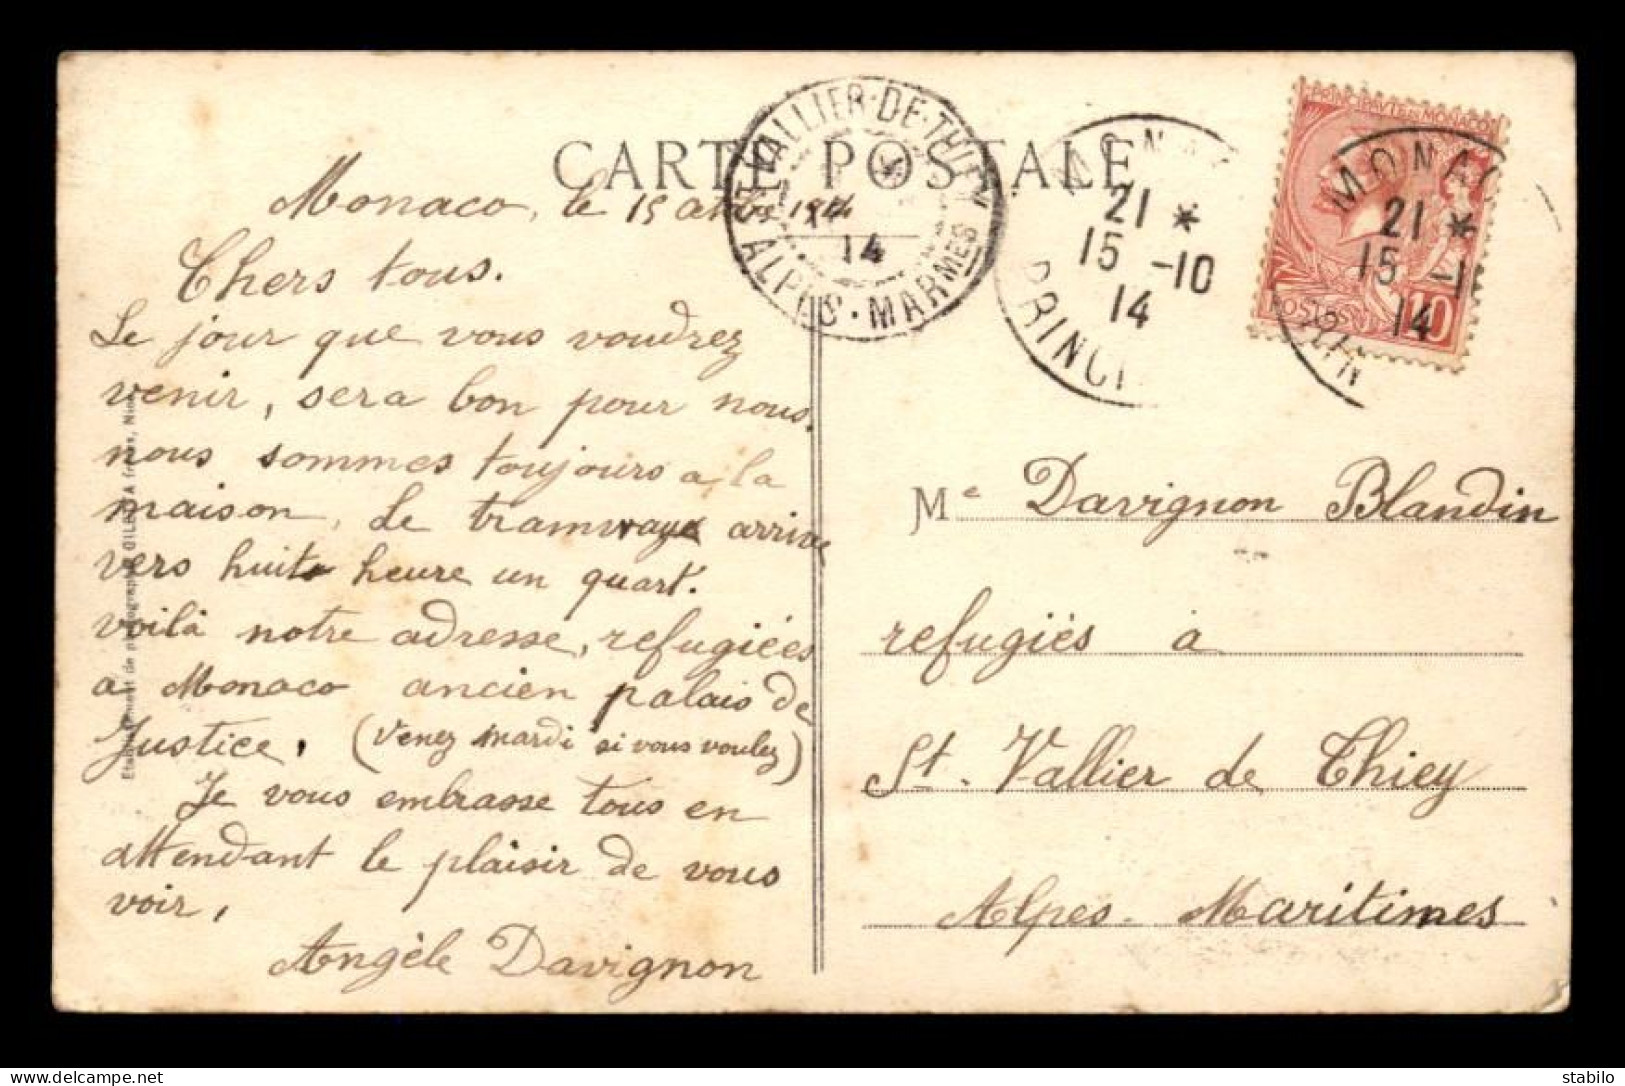 CARTE POSTALE
ST VALLIER-DE-THIEY
14
ALPES-MARMES
MONACO
21 *
15 -10
14
PRINCI
PRINCIPAUTE DE MONACO
POSTES
10
MONAC
21 *
15 -1
14
Monaco, le 15 1914
Chers tous.
Le jour que vous voudrez
venir, sera bon pour nous.
nous sommes toujours a la
maison, Le tramway arrive
vers huit heure un quart.
voilà notre adresse, refugiées
a Monaco ancien palais de
Justice. (Venez mardi si vous voulez)
Je vous embrasse tous en
attendant le plaisir de vous
voir,
Angèle Davignon
Me Davignon Blandin
refugiés à
St. Vallier de Thiey
Alpes-Maritimes
Etablissement de photographie GILETTA frères, Nice
stabilo